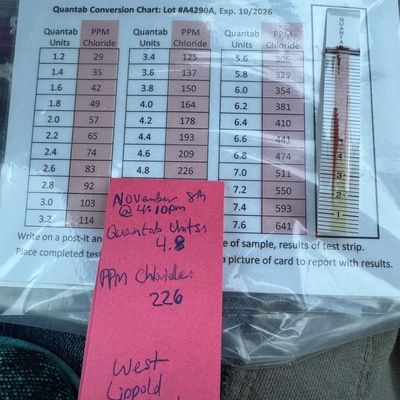 Quantab Conversion Chart: Lot #A4290A, Exp. 10/2026
Quantab Units PPM Chloride Quantab Units PPM Chloride Quantab Units PPM Chloride
1.2 29 3.4 125 5.6 305
1.4 35 3.6 137 5.8 329
1.6 42 3.8 150 6.0 354
1.8 49 4.0 164 6.2 381
2.0 57 4.2 178 6.4 410
2.2 65 4.4 193 6.6 441
2.4 74 4.6 209 6.8 474
2.6 83 4.8 226 7.0 511
2.8 92 7.2 550
3.0 103 7.4 593
3.2 114 7.6 641
QUANTAB
4
3
2
1
Write on a post-it an e of sample, results of test strip.
Place completed test a picture of card to report with results.
November 8th
@ 4:10pm
Quantab Units:
4.8
PPM Chloride:
226
West
Lippold